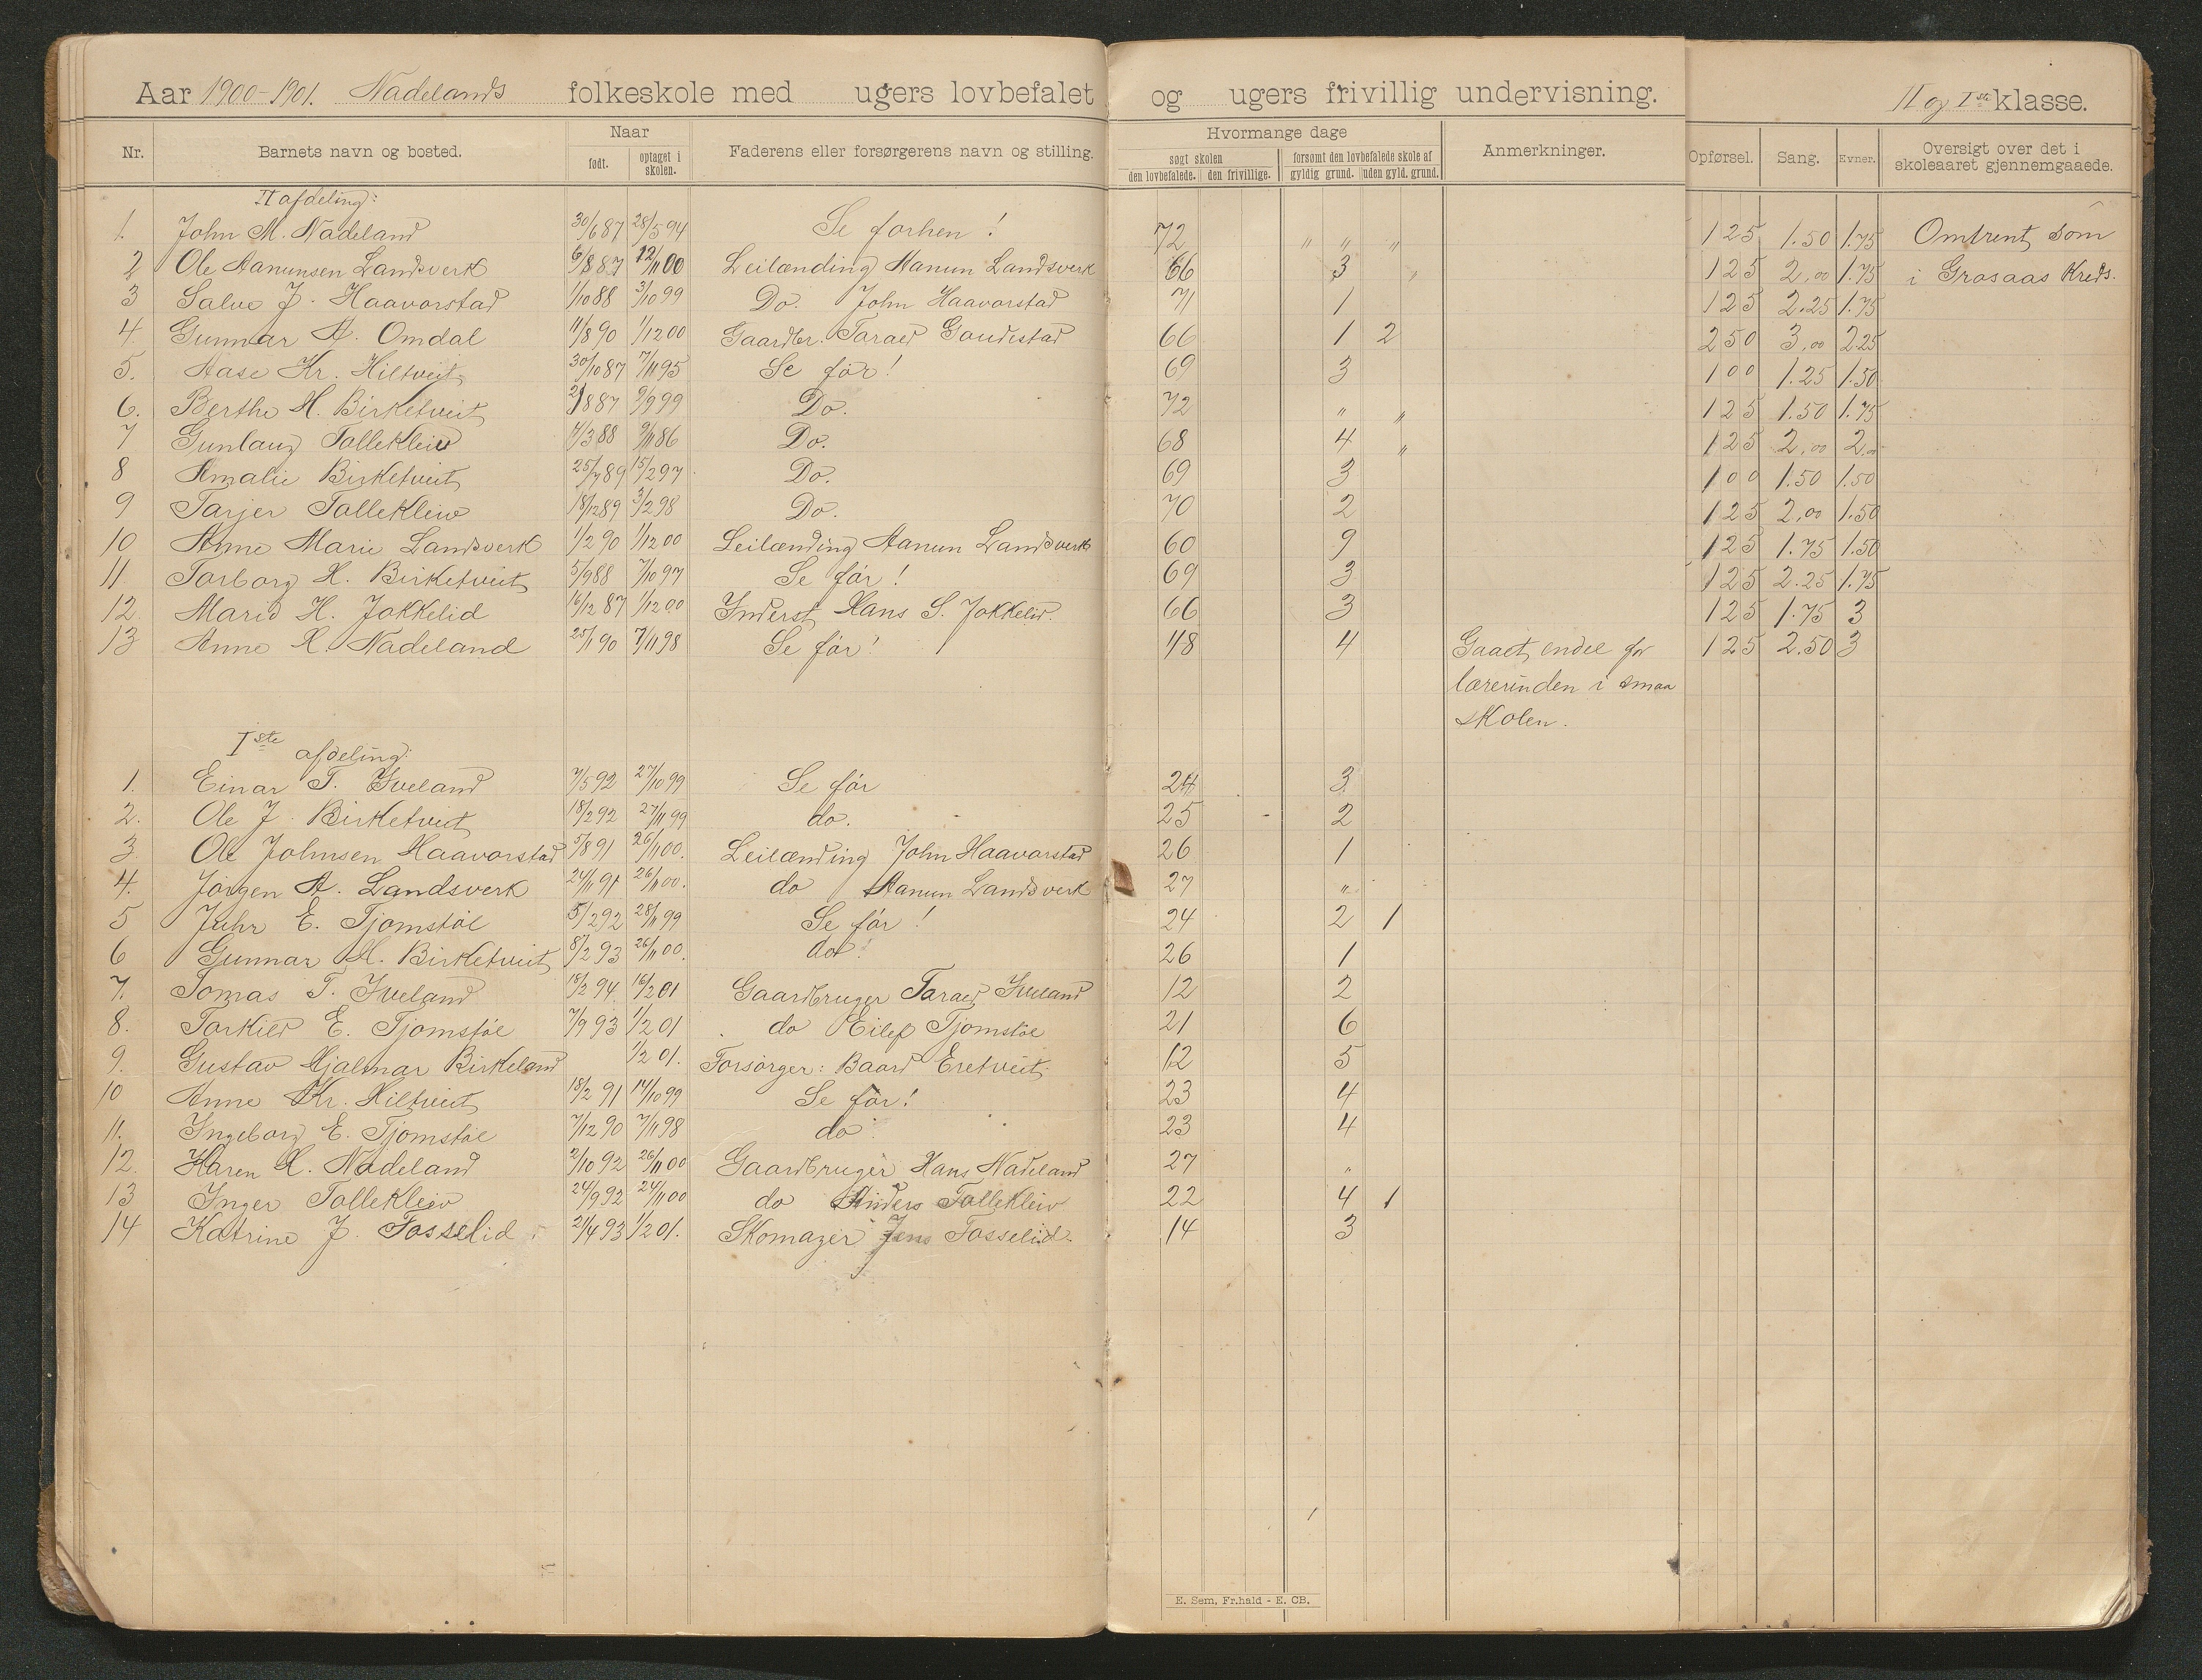 Aar 1900-1901. Nadelands folkeskole med ugers lovbefalet og ugers frivillig undervisning. II og Iste klasse.
Nr. Barnets navn og bosted. Naar født. optaget i skolen. Faderens eller forsørgerens navn og stilling. Hvormange dage søgt skolen den lovbefalede. den frivillige. forsømt den lovbefalede skole af gyldig grund. uden gyld. grund. Anmerkninger. Opførsel. Sang. Evner. Oversigt over det i skoleaaret gjennemgaaede.
II afdeling:
1. John M. Nadeland 30/6 87 28/5 94 Se forhen! 72 " " " 1 25 1.50 1.75 Omtrent som
2 Ole Aanunsen Landsverk 6/8 87 12/11 00 Leilænding Aanun Landsverk 66 3 " 1 25 2,00 1.75 i Grosaas Kreds.
3 Salve J. Haavorstad 1/10 88 3/10 99 Do. John Haavorstad 71 1 1 25 2.25 1.75
4. Gunnar A. Omdal 11/8 90 1/12 00 Gaardbr. Taraed Goudestad 66 1 2 2 50 3,00 2.25
5. Aase Kr. Hiltveit 30/10 87 7/11 95 Se før! 69 3 1 00 1.25 1.50
6. Berthe H. Birketveit 2/8 87 9/9 99 Do. 72 " " 1 25 1.50 1.75
7 Gunlaug Tollekleiv 4/3 88 9/11 86 Do. 68 4 " 1 25 2,00 2,00
8 Amalie Birketveit 25/7 89 15/2 97 Do. 69 3 1 00 1.50 1.50
9 Tarjer Tollekleiv 18/12 89 3/2 98 Do. 70 2 1 25 2,00 1.50
10 Anne Marie Landsverk 1/2 90 1/12 00 Leilænding Aanun Landsverk 60 9 1 25 1.75 1.50
11. Torborg H. Birketveit 5/9 88 7/10 97 Se før! 69 3 1 25 2.25 1.75
12. Marie H. Jokkelid 16/12 87 1/12 00 Inderst Hans S. Jokkelid. 66 3 1 25 1.75 3
13 Anne H. Nadeland 25/1 90 7/11 98 Se før! 48 4 Gaaet endel for 1 25 2.50 3
lærerinden i smaa
skolen.
Iste afdeling:
1. Einar T. Iveland 7/5 92 27/10 99 Se før 24 3
2. Ole J. Birketveit 18/2 92 27/11 99 do. 25 2
3. Ole Johnsen Haavorstad 5/8 91 26/11 00. Leilænding John Haavorstad 26 1
4. Jørgen A. Landsverk 24/11 91 26/11 00. do Aanun Landsverk 27 "
5 Juhr E. Tjomstøl 5/2 92 28/11 99 Se før! 24 2 1
6 Gunnar H. Birketveit 8/2 93 26/11 00. do! 26 1
7. Tomas T. Iveland 18/2 94. 16/2 01 Gaardbruger Taraed Iveland 12 2
8. Torkild E. Tjomstøl 7/9 93 1/2 01. do Eilef Tjomstøl 21 6
9. Gustav Hjalmar Birkeland 1/2 01. Forsørger: Baard Eretveit. 12 5
10 Anne Kr. Hiltveit 18/2 91 14/10 99 Se før! 23 4
11. Ingeborg E. Tjomstøl 7/12 90 7/11 98 do 23 4
12. Karen H. Nadeland 2/10 92 26/11 00 Gaardbruger Hans Nadeland 27 "
13 Inger Tollekleiv 24/9 92 24/11 00 do Anders Tollekleiv 22 4 1
14 Katrine J. Fosselid 21/4 93 1/2 01. Skomager Jens Fosselid. 14 3
E. Sem, Fr.hald - E. CB.